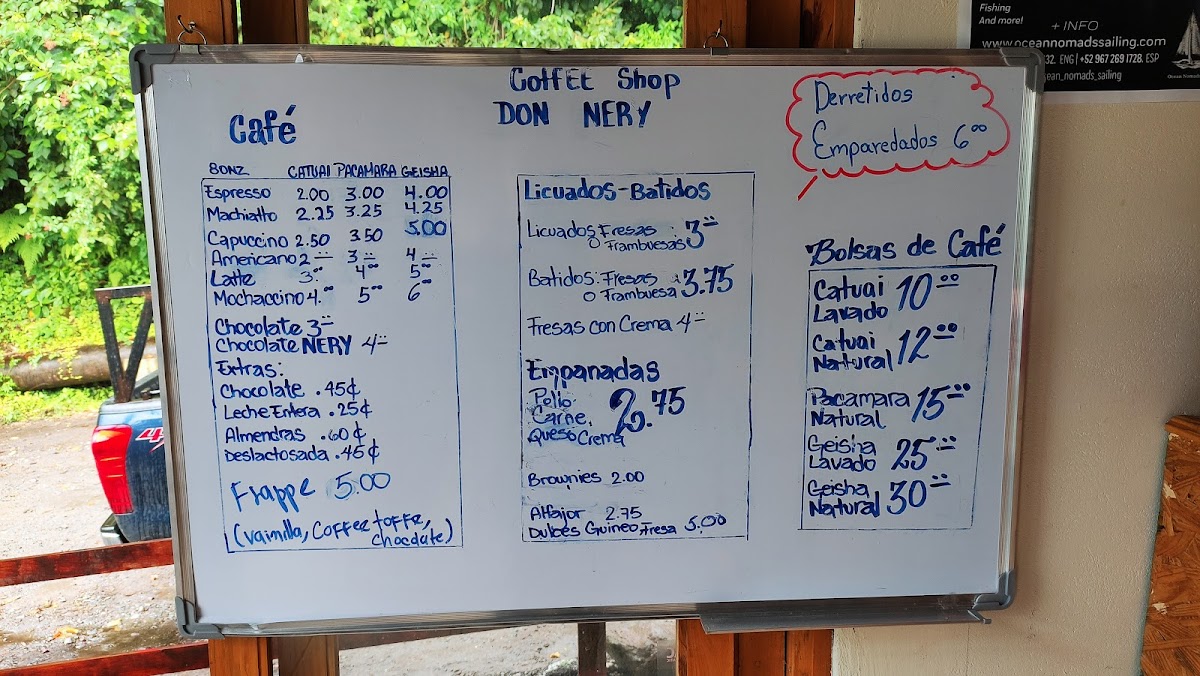 Fishing
And more!
+ INFO
www.oceannomadssailing.com
32. ENG | +52 967 269 1728. ESP
ocean_nomads_sailing
CoffEE Shop
DON NERY
Derretidos
Emparedados 6.00
Café
8ONZ CATUAI PACAMARA GEISHA
Espresso 2.00 3.00 4.00
Machiatto 2.25 3.25 4.25
Capuccino 2.50 3.50 5.00
Americano 2= 3= 4=
Latte 3.00 4.00 5.00
Mochaccino 4.00 5.00 6.00
Chocolate 3=
Chocolate NERY 4=
Extras:
Chocolate .45¢
Leche Entera .25¢
Almendras .60¢
Deslactosada .45¢
Frappe 5.00
(Vainilla, COFFEE toffe,
chocolate)
Licuados-Batidos
Licuados Fresas : 3=
o Frambuesas
Batidos: Fresas 3.75
o Frambuesa
Fresas con Crema 4=
Empanadas
Pollo.
Carne. 2.75
Queso Crema
Brownies 2.00
Alfajor 2.75
Dulces Guineo, Fresa 5.00
Bolsas de Café
Catuai
Lavado 10.00
Catuai
Natural 12.00
Pacamara
Natural 15.00
Geisha
Lavado 25=
Geisha
Natural 30=